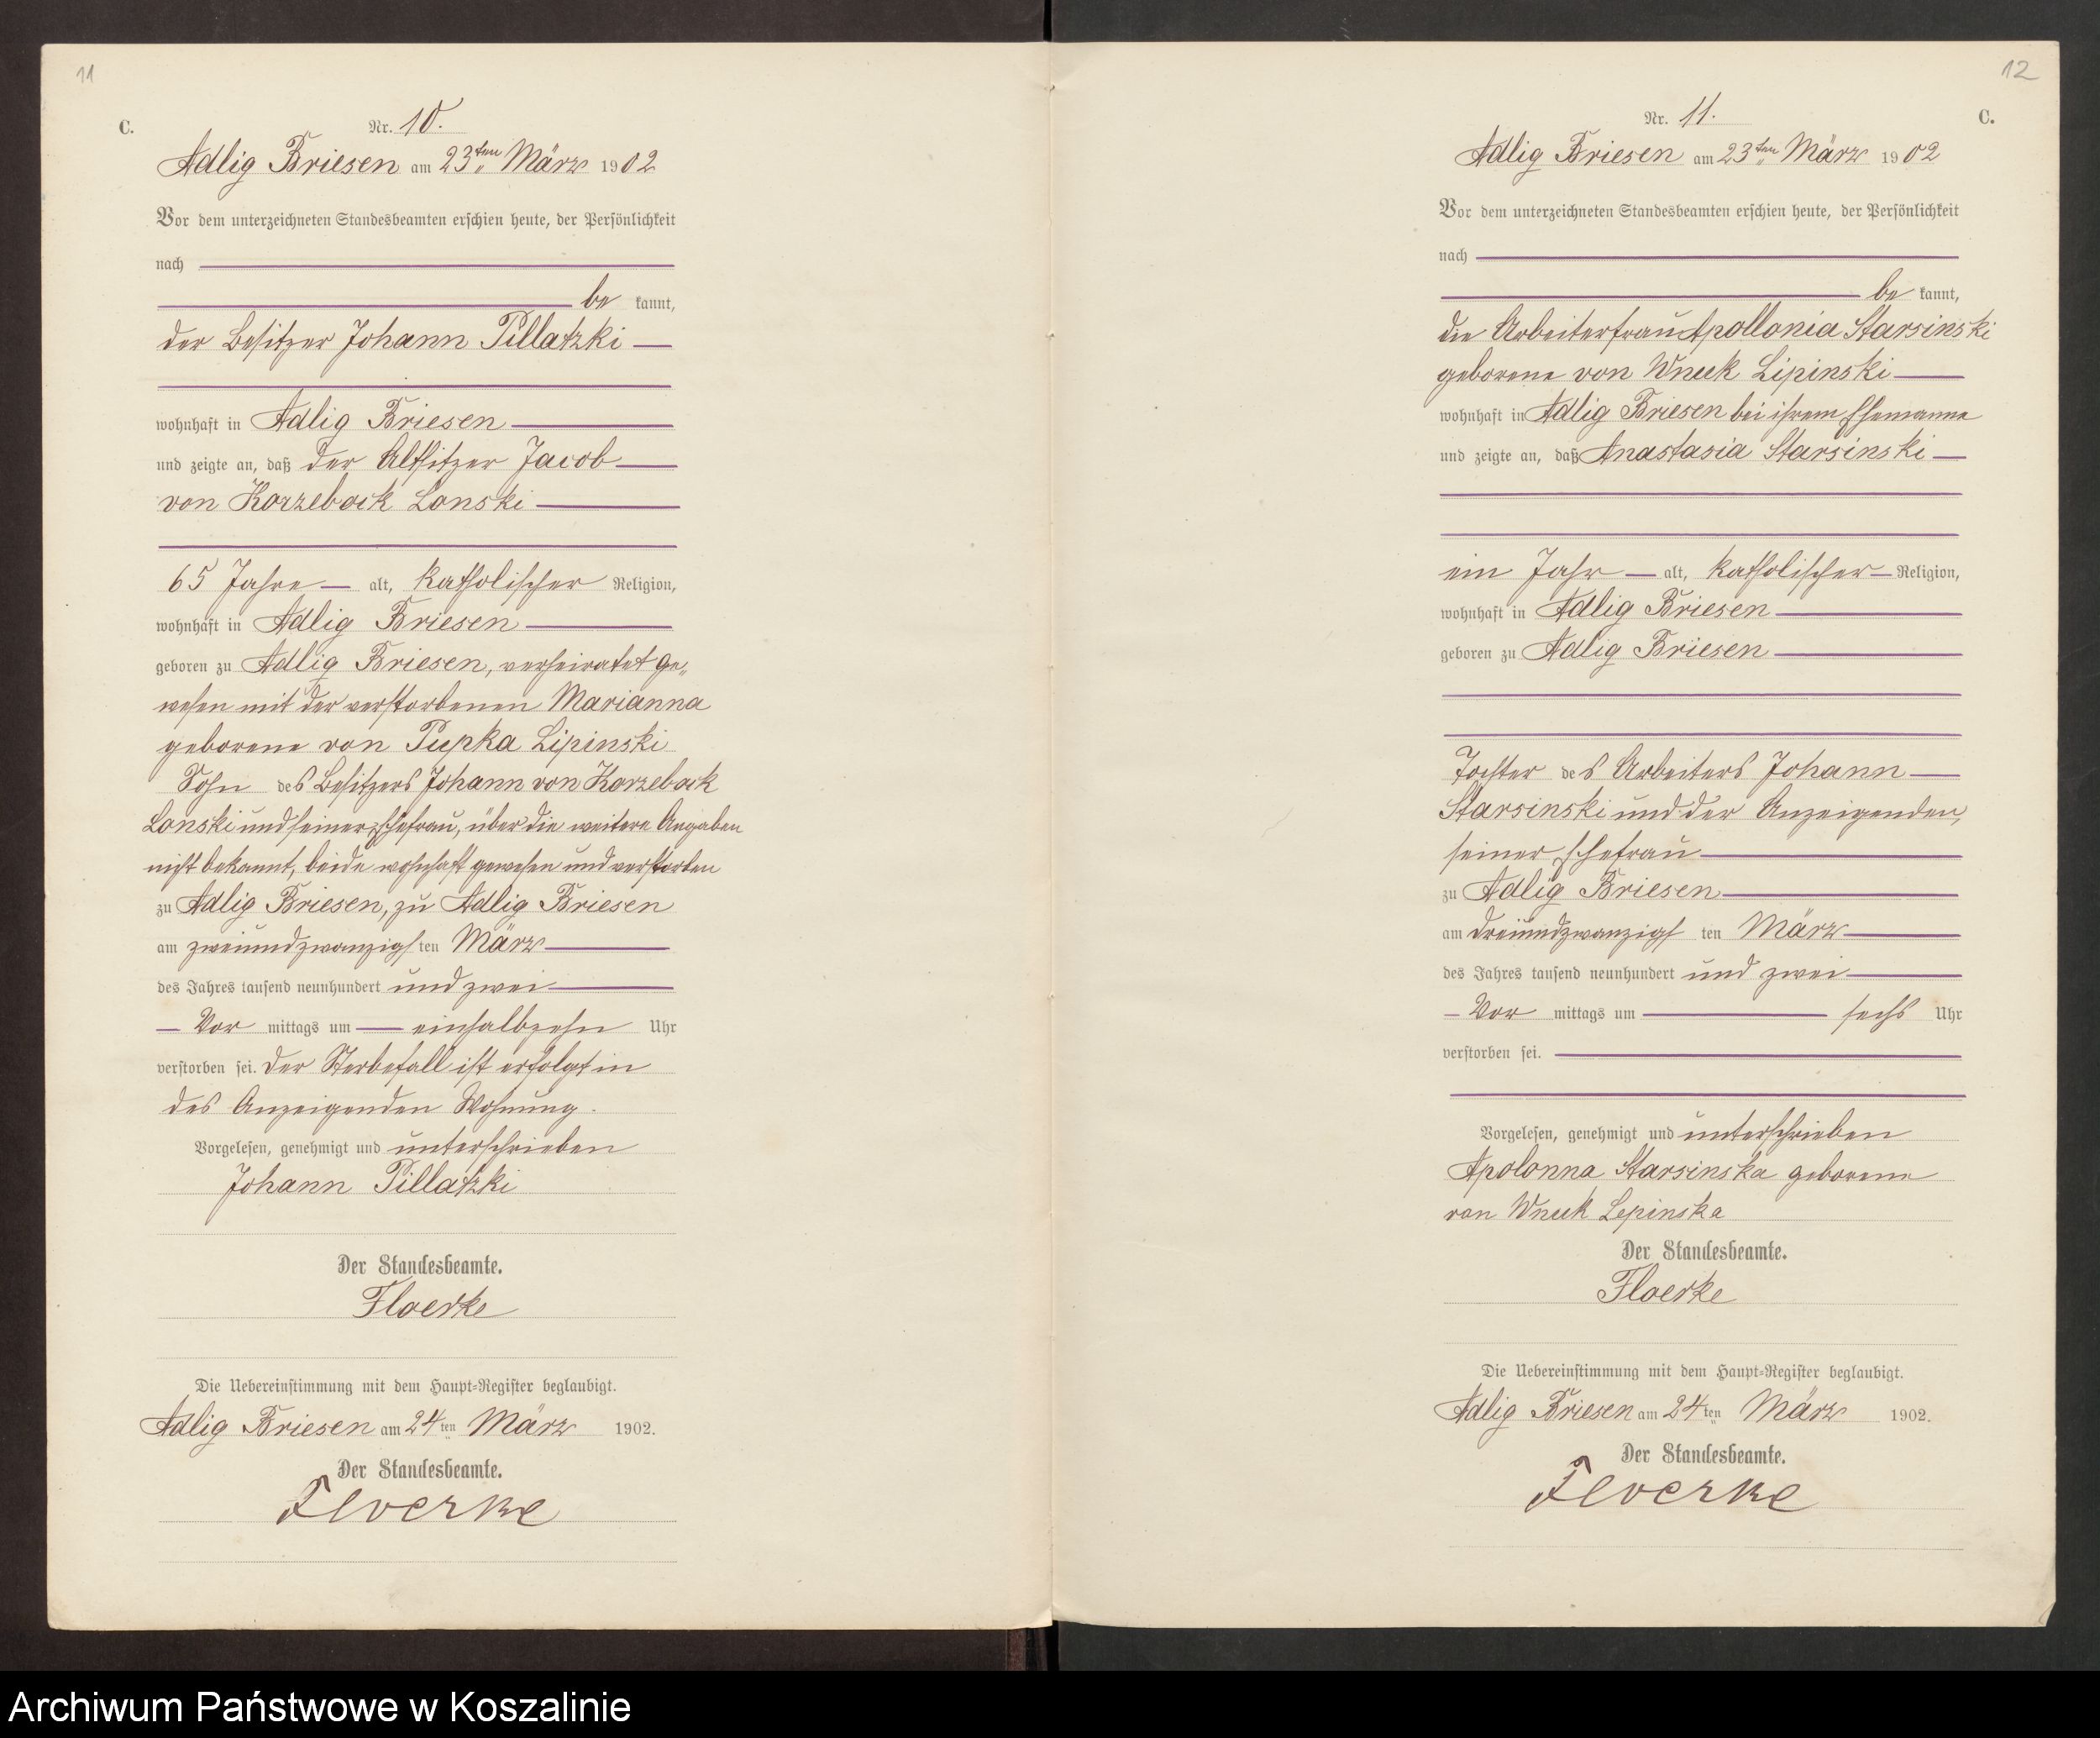 11
C.
Nr. 10.
Adlig Briesen am 23ten März 1902
Vor dem unterzeichneten Standesbeamten erschien heute, der Persönlichkeit
nach
be kannt,
der Besitzer Johann Pillatzki
wohnhaft in Adlig Briesen
und zeigte an, daß der Altsitzer Jacob
von Korzebock Lonski
65 Jahre alt, katholischer Religion,
wohnhaft in Adlig Briesen
geboren zu Adlig Briesen, verheiratet ge„
wesen mit der verstorbenen Marianna
geborene von Pupka Lipinski
Sohn des Besitzers Johann von Korzebock
Lonski und seiner Ehefrau, über die weitere Angaben
nicht bekannt, beide wohnhaft gewesen und verstorben
zu Adlig Briesen, zu Adlig Briesen
am zweiundzwanzigsten März
des Jahres tausend neunhundert und zwei
Vor mittags um einhalbzehn Uhr
verstorben sei. Der Sterbefall ist erfolgt in
des Anzeigenden Wohnung.
Vorgelesen, genehmigt und unterschrieben
Johann Pillatzki
Der Standesbeamte.
Floerke
Die Uebereinstimmung mit dem Haupt-Register beglaubigt.
Adlig Briesen am 24ten März 1902.
Der Standesbeamte.
Floerke
12
C.
Nr. 11.
Adlig Briesen am 23ten März 1902
Vor dem unterzeichneten Standesbeamten erschien heute, der Persönlichkeit
nach
be kannt,
die Arbeiterfrau Apollonia Starsinski
geborene von Wnuk Lipinski
wohnhaft in Adlig Briesen bei ihrem Ehemanne
und zeigte an, daß Anastasia Starsinski
ein Jahr alt, katholischer Religion,
wohnhaft in Adlig Briesen
geboren zu Adlig Briesen
Tochter des Arbeiters Johann
Starsinski und der Anzeigenden,
seiner Ehefrau
zu Adlig Briesen
am dreiundzwanzigsten März
des Jahres tausend neunhundert und zwei
Vor mittags um sechs Uhr
verstorben sei.
Vorgelesen, genehmigt und unterschrieben
Apolonna Starsinska geborene
von Wnuk Lepinska
Der Standesbeamte.
Floerke
Die Uebereinstimmung mit dem Haupt-Register beglaubigt.
Adlig Briesen am 24ten März 1902.
Der Standesbeamte.
Floerke
Archiwum Państwowe w Koszalinie